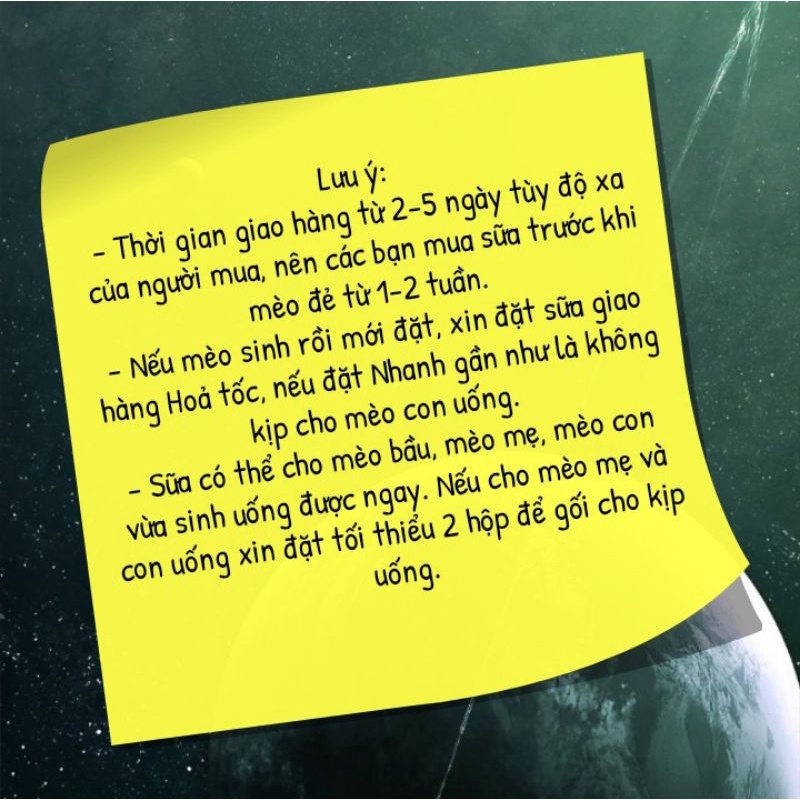 Lưu ý:
- Thời gian giao hàng từ 2-5 ngày tùy độ xa
của người mua, nên các bạn mua sữa trước khi
mèo đẻ từ 1-2 tuần.
- Nếu mèo sinh rồi mới đặt, xin đặt sữa giao
hàng Hoả tốc, nếu đặt Nhanh gần như là không
kịp cho mèo con uống.
- Sữa có thể cho mèo bầu, mèo mẹ, mèo con
vừa sinh uống được ngay. Nếu cho mèo mẹ và
con uống xin đặt tối thiểu 2 hộp để gối cho kịp
uống.